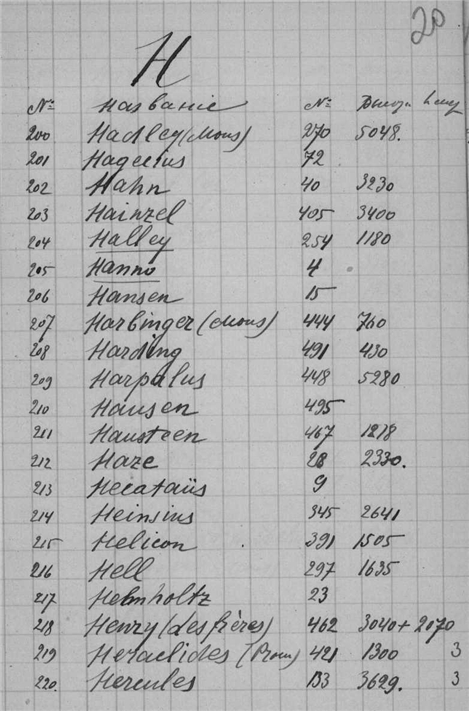 20
H
№ Название № Высоты
200 Hadley (Mons) 270 5048.
201 Hagecius 72
202 Hahn 40 3230
203 Hainzel 405 3400
204 Halley 254 1180
205 Hanno 4
206 Hansen 15
207 Harbinger (Mons) 444 760
208 Harding 491 430
209 Harpalus 448 5280
210 Hausen 495
211 Hausteen 467 1278
212 Haze 28 2330.
213 Hecataüs 9
214 Heinsius 345 2641
215 Helicon 391 1505
216 Hell 297 1635
217 Helmholtz 23
218 Henry (des frères) 462 3040 + 2070
219 Heraclides (Prom) 421 1300 3
220. Hercules 133 3629. 3